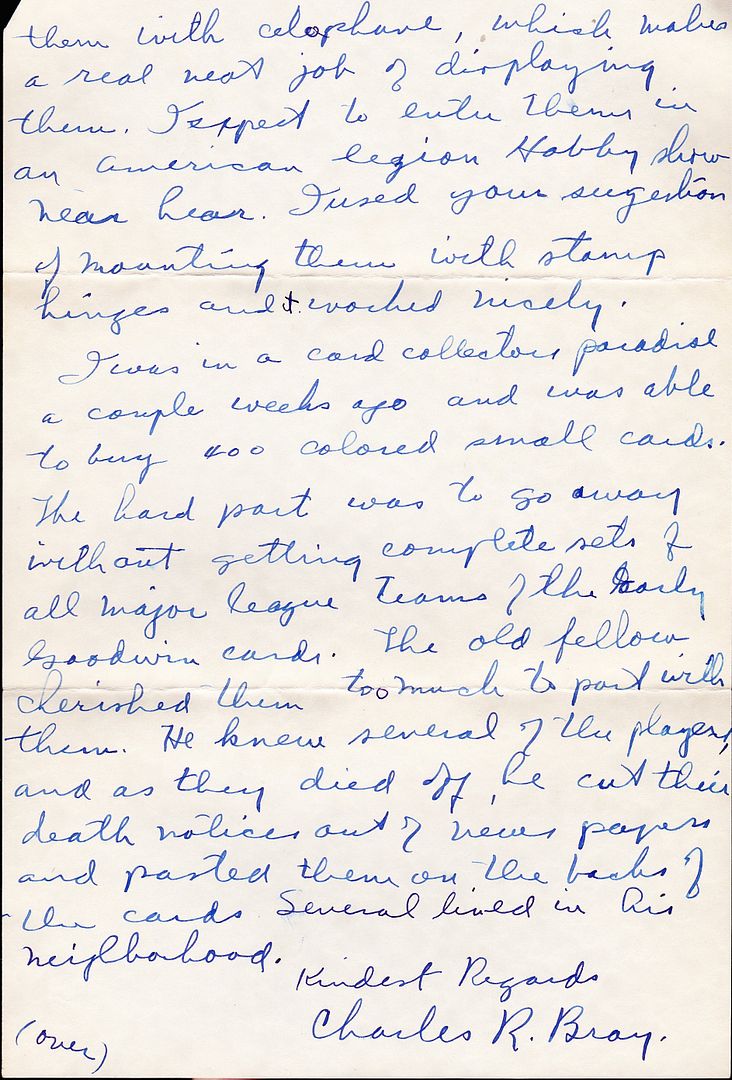 them with celophane, which makes
a real neat job of displaying
them. I expect to enter them in
an American legion Hobby show
near hear. I used your sugestion
of mounting them with stamp
hinges and it worked nicely.
I was in a card collectors paradise
a couple weeks ago and was able
to buy 400 colored small cards.
The hard part was to go away
without getting complete sets of
all major league teams of the Early
Goodwin cards. The old fellow
cherished them too much to part with
them. He knew several of the players,
and as they died off, he cut their
death notices out of news papers
and pasted them on the backs of
the cards Several lived in his
neighborhood.
Kindest Regards
Charles R. Bray.
(over)